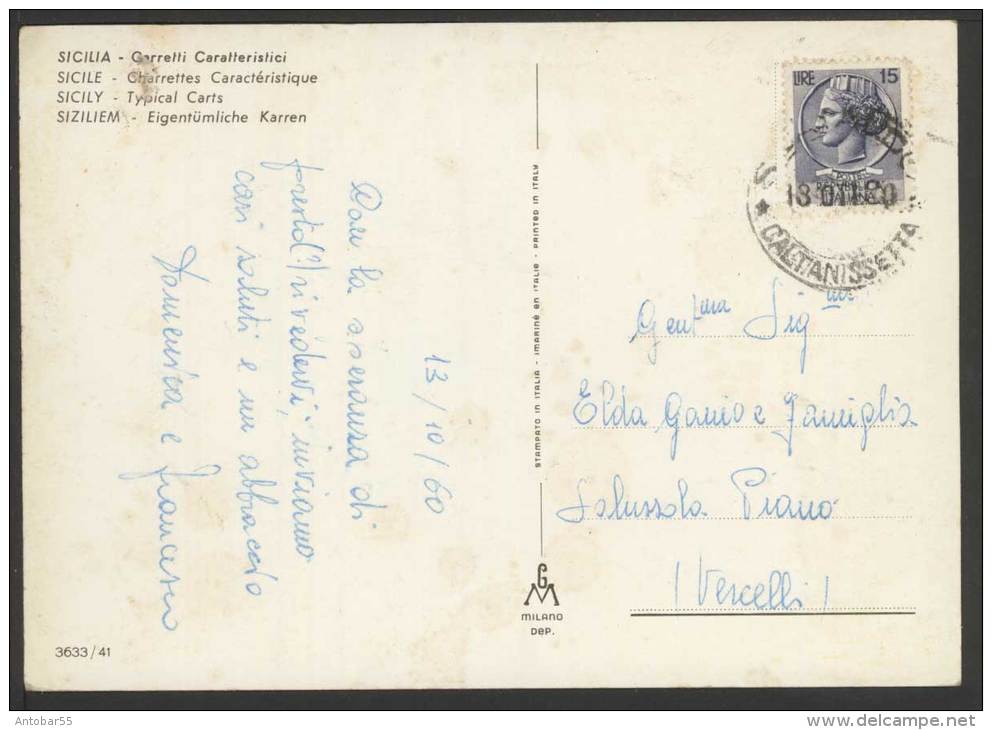 SICILIA - Carretti Caratteristici
SICILE - Charrettes Caractéristique
SICILY - Typical Carts
SIZILIEM - Eigentümliche Karren
13/10/60
Con la speranza di
presto(?) rivedervi, inviamo
cari saluti e un abbraccio
Domenica e Francesco
STAMPATO IN ITALIA - IMPRIMÉ EN ITALIE - PRINTED IN ITALY
LIRE 15
POSTE
ITALIANA
13 60
* CALTANISSETTA
Gent.ma Sig.ma
Elda Gamo e Famiglia
Salussola Piano
(Vercelli)
GM
MILANO
DEP.
3633/41
Antobar55
www.delcampe.net